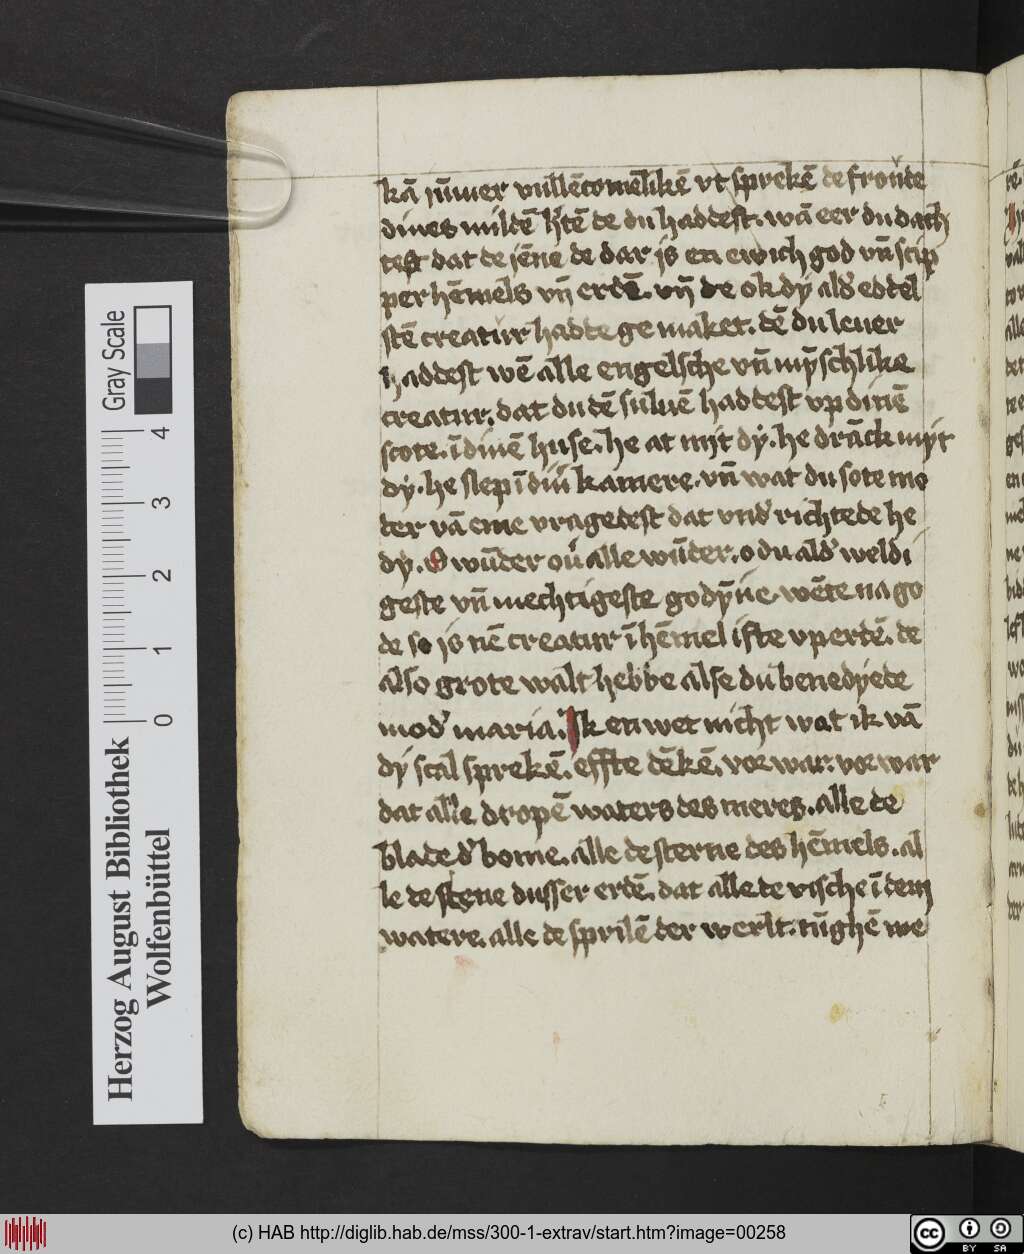 kā jūmer vullēcomēlikē vt sprekē de froude
dines mildē h'tē de du haddest. wā eer du dach
test dat de jēne de dar is en ewich god vn̄ scip
per hēmels vn̄ erdē. vn̄ de ok dy ald' eddel
stē creatur hadde ge maket. dē du leuer
haddest wē alle engelsche vn̄ mȳschlike
creatur. dat du dē suluē haddest vp dinē
scote. ī dinē huse. he at mijt dy. he drāck myt
dy. he slep ī din' kamere. vn̄ wat du sote mo
der vā eme vragedest dat vnd' richtede he
dy. O wūder ou' alle wūder. o du ald' weldi
geste vn̄ mechtigeste godȳne. wēte na go
de so is nē creatur ī hēmel ifte vp erdē. de
also grote walt hebbe alse du benedyede
mod' maria. Ik en wet nicht wat ik vā
dy scal sprekē. effte dēkē. vor war. vor war
dat alle dropē waters des meres. alle de
blade d' bome. alle de sterne des hēmels. al
le de stene dusser erdē. dat alle de vische ī dem
watere. alle de sprilē der werlt. tūghē we
Gray Scale
4
3
2
1
0
Herzog August Bibliothek
Wolfenbüttel
(c) HAB http://diglib.hab.de/mss/300-1-extrav/start.htm?image=00258
cc BY SA